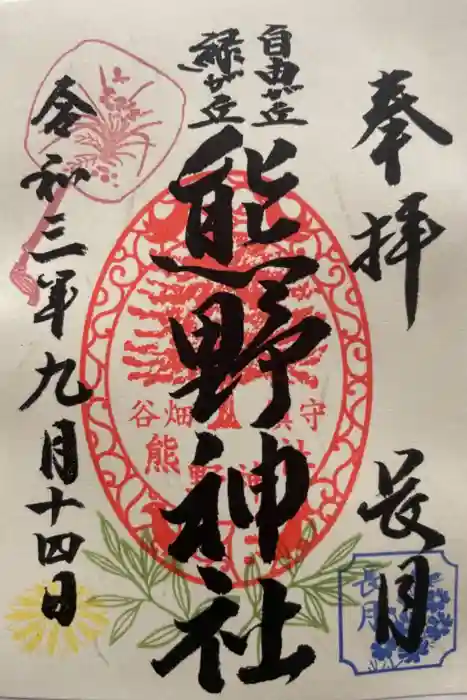 奉拝
長月
長月
自由が丘
緑が丘
熊野神社
谷畑
鎮守
熊野神社
令和三年九月十四日